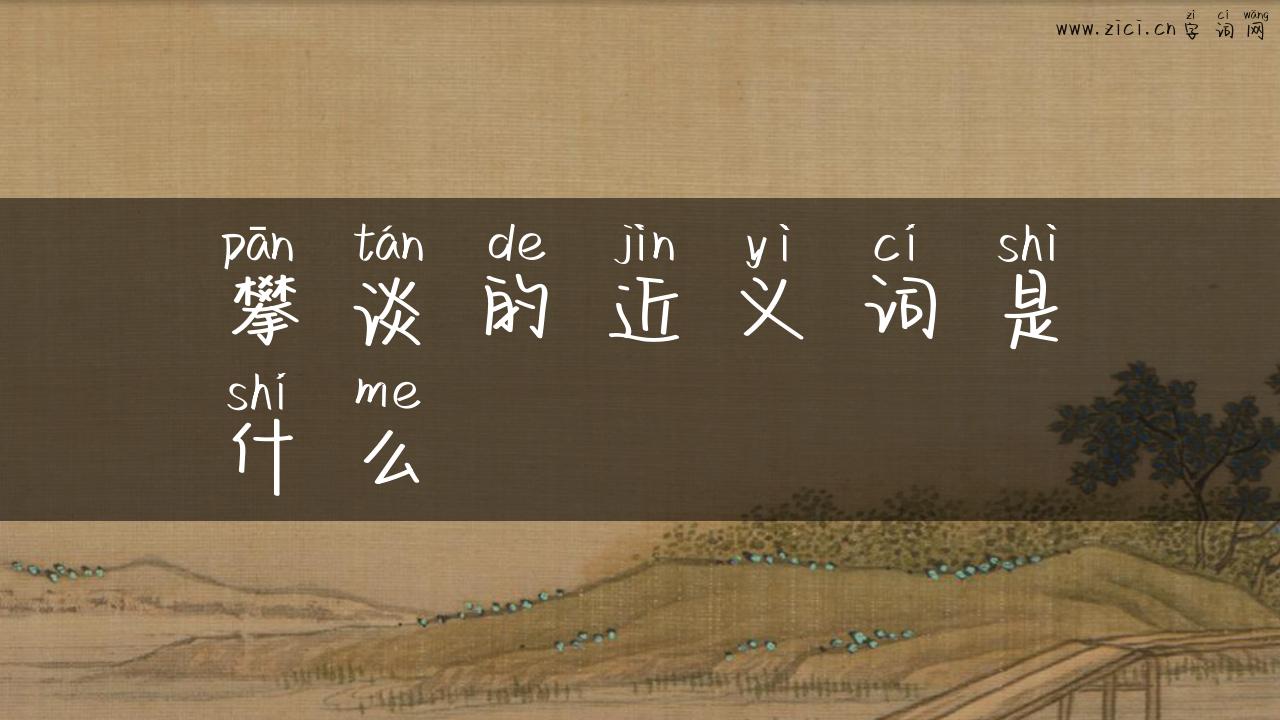 zì cí wǎng
www.zici.cn 字 词 网
pān tán de jìn yì cí shì
攀 谈 的 近 义 词 是
shí me
什 么